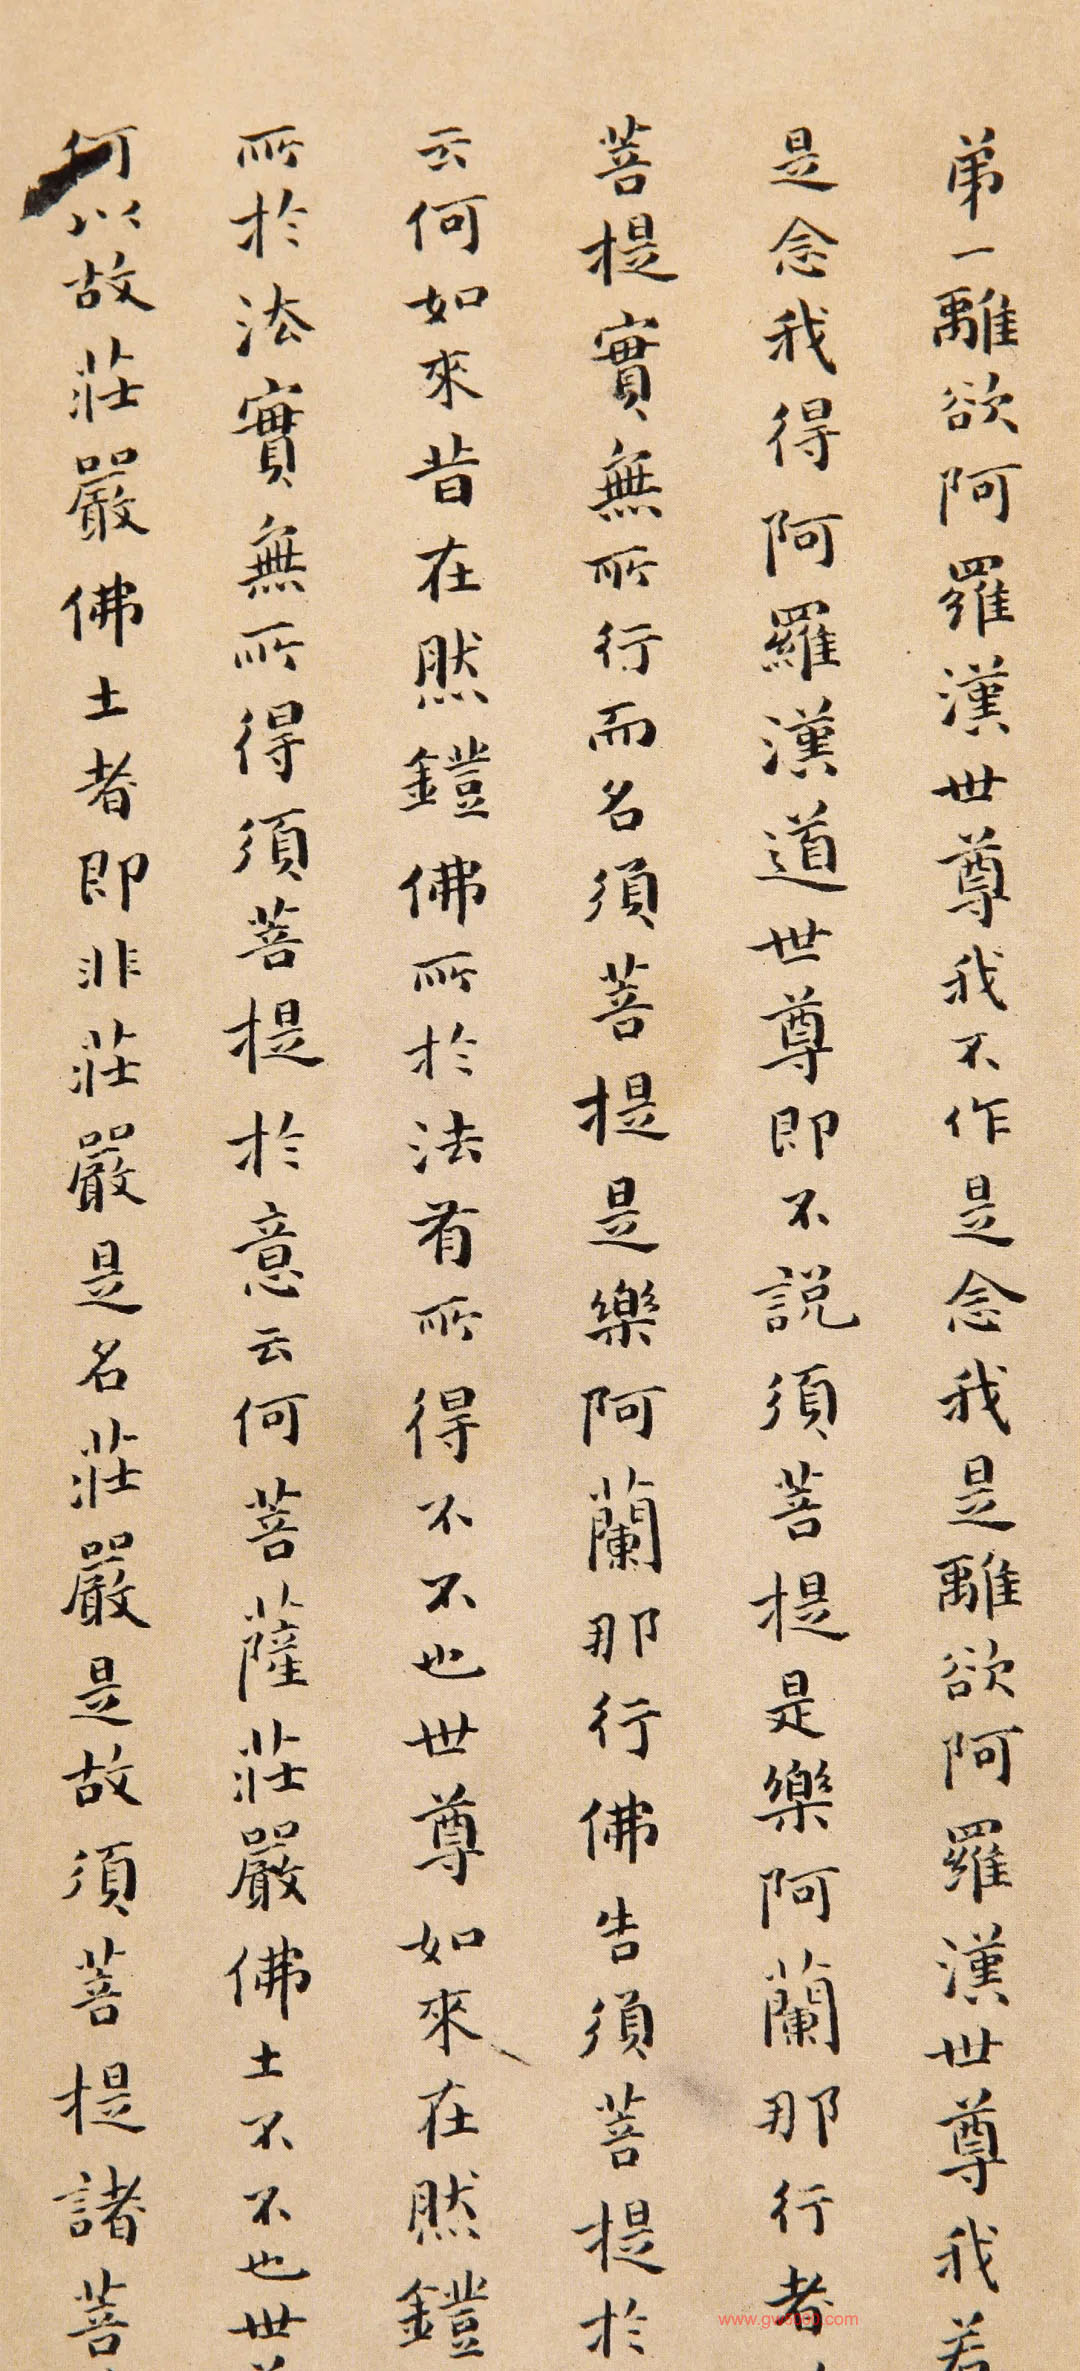 弟一離欲阿羅漢世尊我不作是念我是離欲阿羅漢世尊我若
是念我得阿羅漢道世尊即不説須菩提是樂阿蘭那行者
菩提實無所行而名須菩提是樂阿蘭那行佛告須菩提於
云何如來昔在然鐙佛所於法有所得不不也世尊如來在然鐙
所於法實無所得須菩提於意云何菩薩莊嚴佛土不不也世
何以故莊嚴佛土者即非莊嚴是名莊嚴是故須菩提諸菩